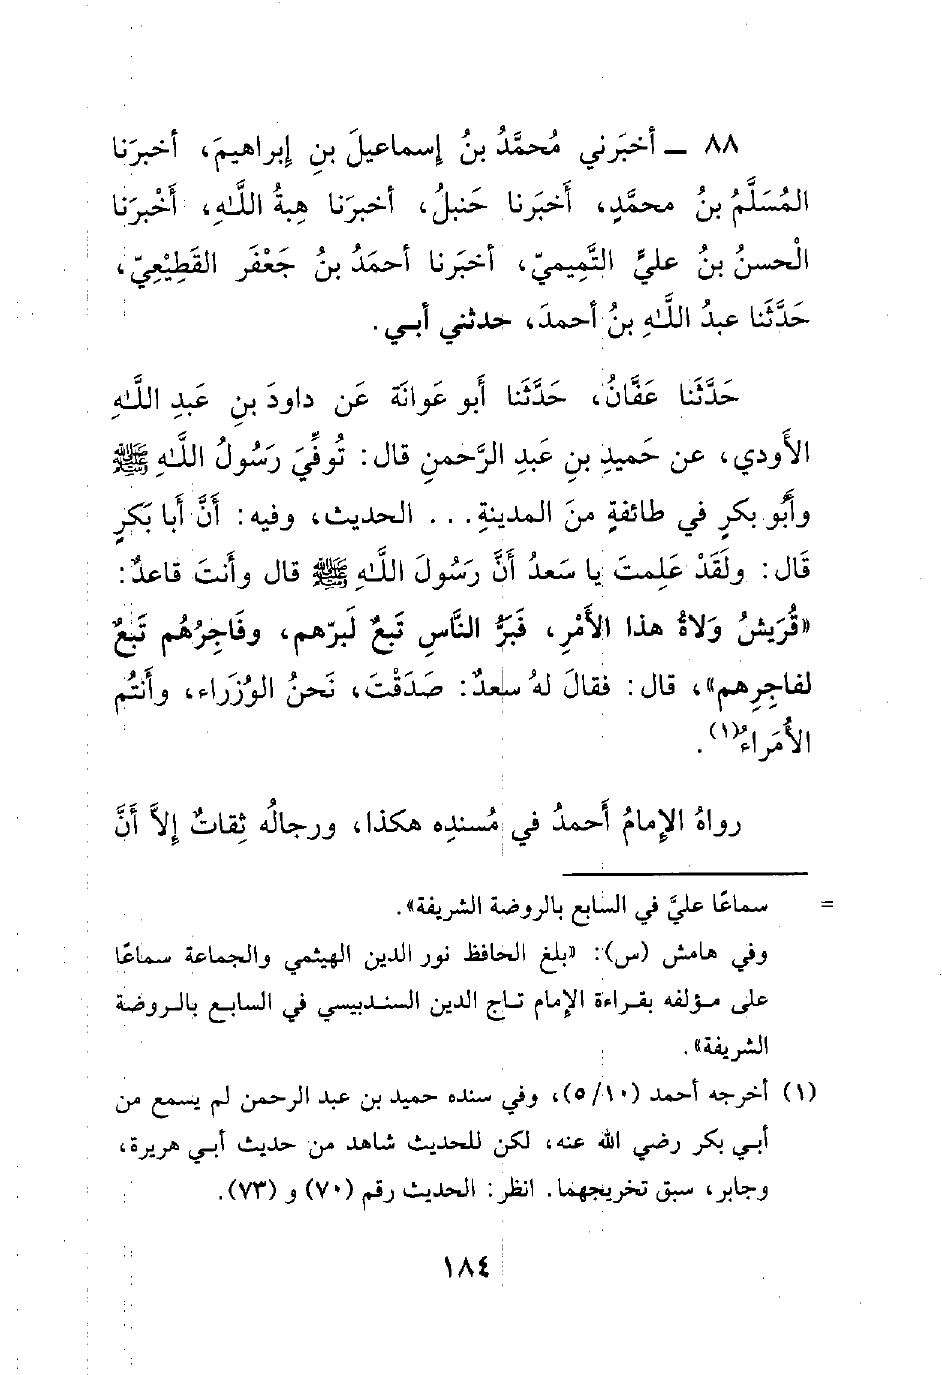 ٨٨ ــ أخبَرني مُحمَّدُ بنُ إسماعيلَ بنِ إبراهيمَ، أخبرَنا
المُسَلَّمُ بنُ محمَّدٍ، أَخبَرنا حَنبلُ، أخبرَنا هِبةُ اللَّهِ، أَخْبرَنا
الْحسنُ بنُ عليٍّ التَّمِيميّ، أخبَرنا أحمَدُ بنُ جَعْفَر القَطِيْعِيّ،
حَدَّثَنا عبدُ اللَّهِ بنُ أحمدَ، حدثني أبي.
حَدَّثَنا عَفَّانُ، حَدَّثَنا أَبو عَوانَة عَن داودَ بنِ عَبدِ اللَّهِ
الأَودي، عن حَميدِ بنِ عَبدِ الرَّحمنِ قال: تُوفِّيَ رَسُولُ اللَّهِ ﷺ
وأَبُو بكرٍ في طائفةٍ منَ المدينةِ... الحديث، وفيه: أَنَّ أَبا بَكرٍ
قَال: ولَقَدْ عَلِمتَ يا سَعدُ أَنَّ رَسُولَ اللَّهِ ﷺ قال وأَنتَ قاعدٌ:
«قُرَيشٌ وَلاةُ هذا الأَمْرِ، فَبَرُّ النَّاسِ تَبعٌ لَبرّهم، وفَاجِرُهُم تَبَعٌ
لفاجِرِهم»، قال: فقالَ لهُ سعدٌ: صَدَقْتَ، نَحنُ الوُزَراء، وأَنتُم
الأُمَراءُ(١).
رواهُ الإِمامُ أَحمدُ في مُسندِه هكذا، ورجالُه ثِقاتٌ إلاَّ أَنَّ
= سماعًا عليَّ في السابع بالروضة الشريفة».
وفي هامش (س): «بلغ الحافظ نور الدين الهيثمي والجماعة سماعًا
على مؤلفه بقراءة الإمام تاج الدين السندبيسي في السابع بالروضة
الشريفة».
(١) أخرجه أحمد (٥/١٠)، وفي سنده حميد بن عبد الرحمن لم يسمع من
أبي بكر رضي الله عنه، لكن للحديث شاهد من حديث أبي هريرة،
وجابر، سبق تخريجهما. انظر: الحديث رقم (٧٠) و (٧٣).
١٨٤